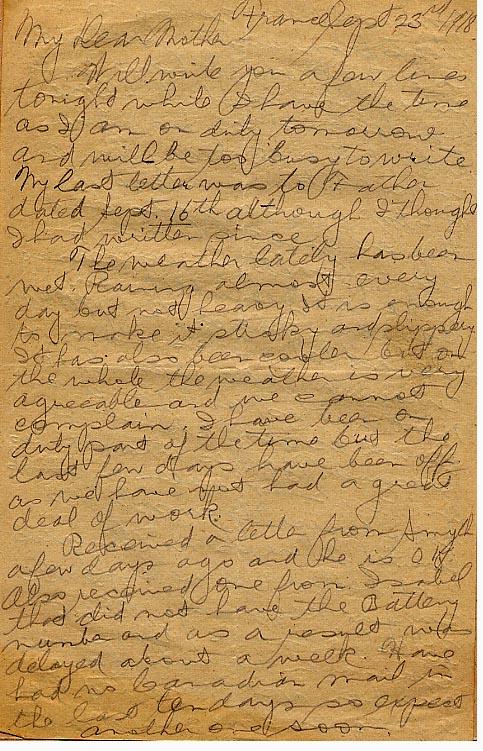 France Sept 23rd/1918
My Dear Mother
Will write you a few lines
tonight while I have the time
as I am on duty tomorrow
and will be too busy to write.
My last letter was to Father
dated Sept. 16th although I thought
I had written since.
The weather lately has been
wet. Raining almost every
day but not heavy. It is enough
to make it sticky and slippery
It has also been cooler but on
the whole the weather is very
agreeable and we cannot
complain. I have been on
duty part of the time but the
last few days have been off
as we have not had a great
deal of work.
Received a letter from Smyth
a few days ago and he is O.K.
Also received one from Isabel
that did not have the Battery
number and as a result was
delayed about a week. Have
had no Canadian mail in
the last ten days so expect
another one soon.